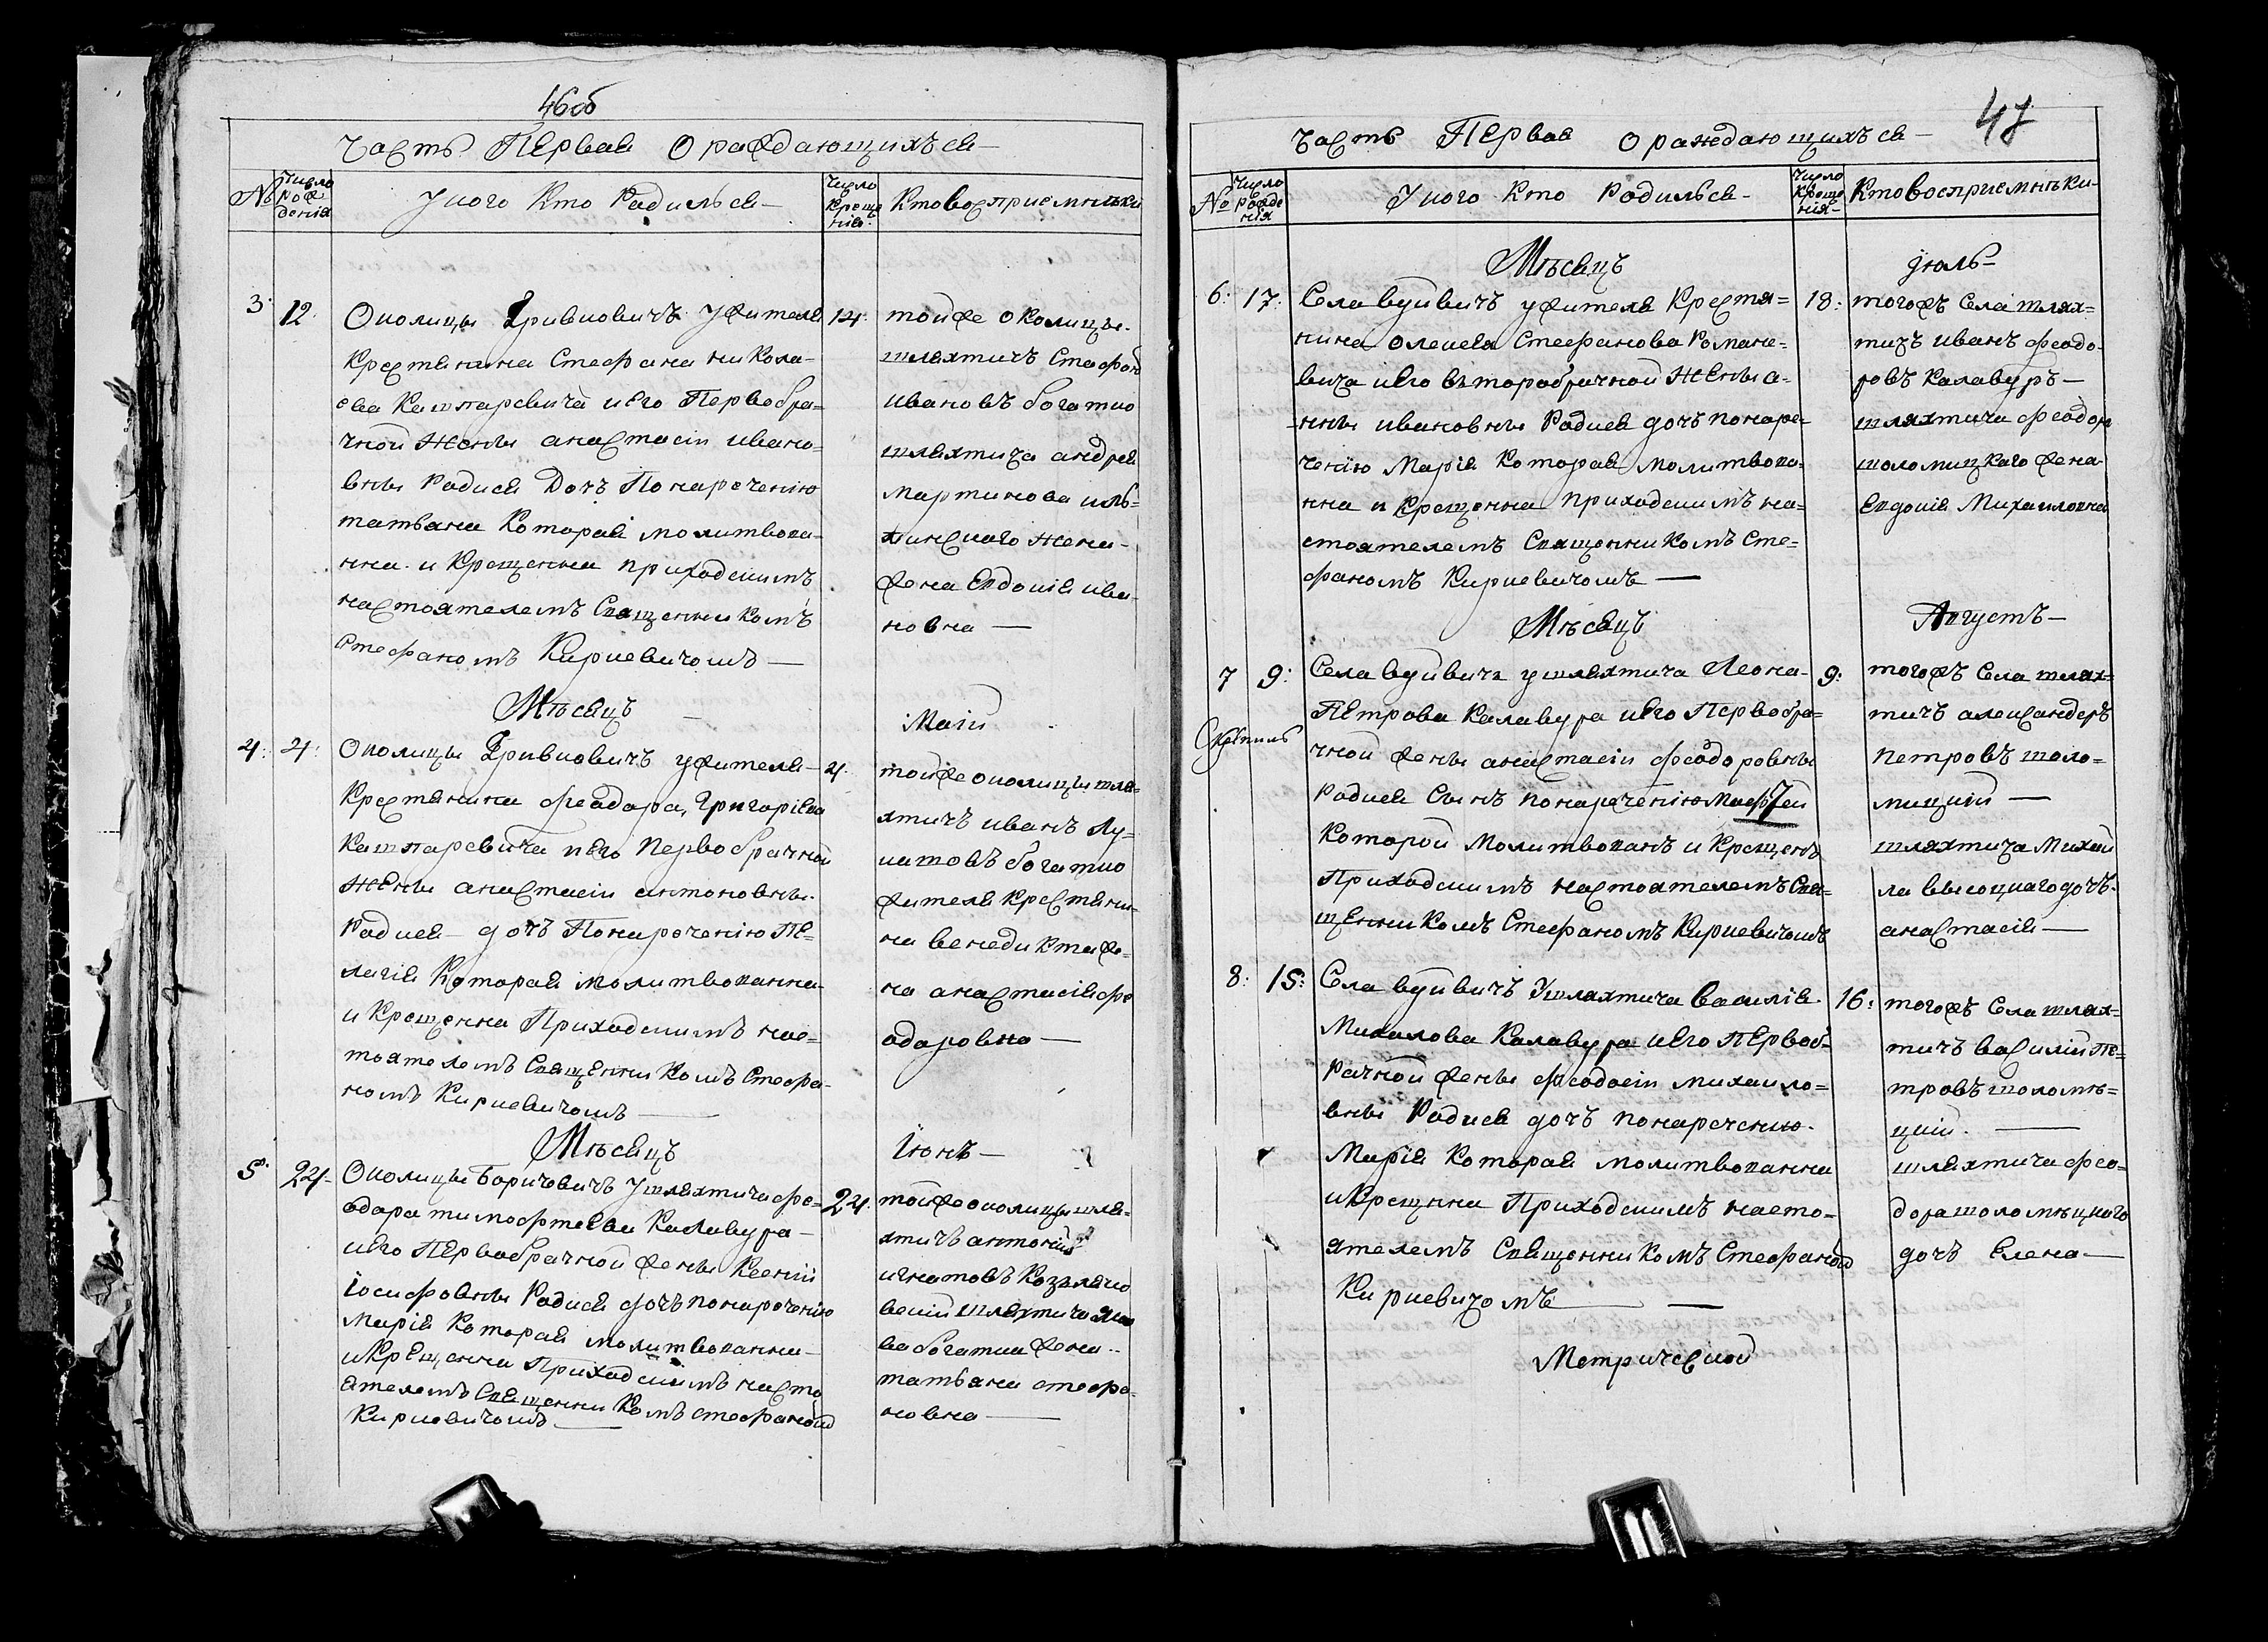 46об
Часть Первая О раждающихъся
№
Число рождения
У кого Кто Радилъся
Число Крещения
Кто восприемники
3. 12.
Околицы Гривковичъ ужителя
Крестянина Стефана Никола-
ева Кашпаревича и Его Первобра=
чной жены анастасіи ивано-
вны Радися Дочъ По наречению
татьяна Которая молитвова-
нна и Крещенна приходскимъ
настоятелемъ Священникомъ
Стефаномъ Киркевичомъ
14.
тойже околицы
шляхтичъ Стефанъ
ивановъ богатко
шляхтича андрея
мартинова иль-
жена
жена Евдокия ива
новна
Мѣсяцъ Маій
4. 4.
Околицы Гривковичъ ужителя
Крестянина феодара Григориева
Кашпаревича и Его Первобрачной
жены анастасіи антоновны
Радися дочъ По наречению Пе=
лагія Которая молитвованна
и Крещенна Приходскимъ нас=
тоятелемъ Священникомъ Стефа-
номъ Киркевичомъ
4.
тойже околицы шля=
хтичъ иванъ Лу=
катовъ богатко
жителя крестяни-
на венедикта же-
на анастасія фе
одаровна
Мѣсяцъ Iюнъ
5. 24.
Околицы Боричевичъ у шляхтича фе=
одара тимофтеева Калавура
и Его Первобрачной жены Ксении
Iосифовны Радися дочъ по наречению
Марія Которая молитвованна
и Крещенна Приходскимъ насто
ятелемъ Священникомъ Стефаномъ
Киркевичомъ
24.
тойже околицы шля=
хтичъ антоній
игнатовъ Козляко
вский шляхтича
ва богатка жена
татьяна стефа-
новна
47
Часть Первая О раждающихъся
№
Число рождения
У кого Кто Радилъся
Число Крещения
Кто восприемники
Мѣсяцъ Iюль
6: 17:
Села вуйвичъ ужителя Крестя=
нина олексея Стефанова Романо-
вича и Его второбрачной жены а-
нны ивановны Радися дочъ по наре-
чению Марія Которая молитвова-
нна и Крещенна Приходскимъ на=
стоятелемъ Священникомъ Сте=
фаномъ Киркевичомъ
18:
тогожъ Села шлях=
тичъ иванъ феодо-
ровъ Калавуръ
шляхтича феодора
шоломицкаго жена
Евдокія Михаиловна
Мѣсяцъ Августъ
7 9:
Села вуйвичъ у шляхтича Леона
Петрова Калавура и Его Первобра=
чной жены анастасіи феодоровны
Радися Сынъ по наречению
Которой Молитвованъ и Крещенъ
Приходскимъ настоятелемъ Свя=
щенникомъ Стефаномъ Киркевичомъ
9:
тогожъ Села шлях=
тичъ александеръ
Петровъ шоло=
мицкій
шляхтича Михай
ла высоцкаго дочъ
анастасія
8: 15:
Села вуйвичъ У шляхтича василія
Михалова Калавура и Его Первоб-
рачной жены феодосіи михаило=
вны Радися дочъ по наречению
Марія Которая молитвованна
и Крещенна Приходскимъ насто=
ятелемъ Священникомъ Стефаномъ
Киркевичомъ
16:
тогожъ Села шлях=
тичъ василій Пе=
тровъ шоломи=
цкій
шляхтича фео=
дора шоломицкаго
дочъ Елена
Метрической